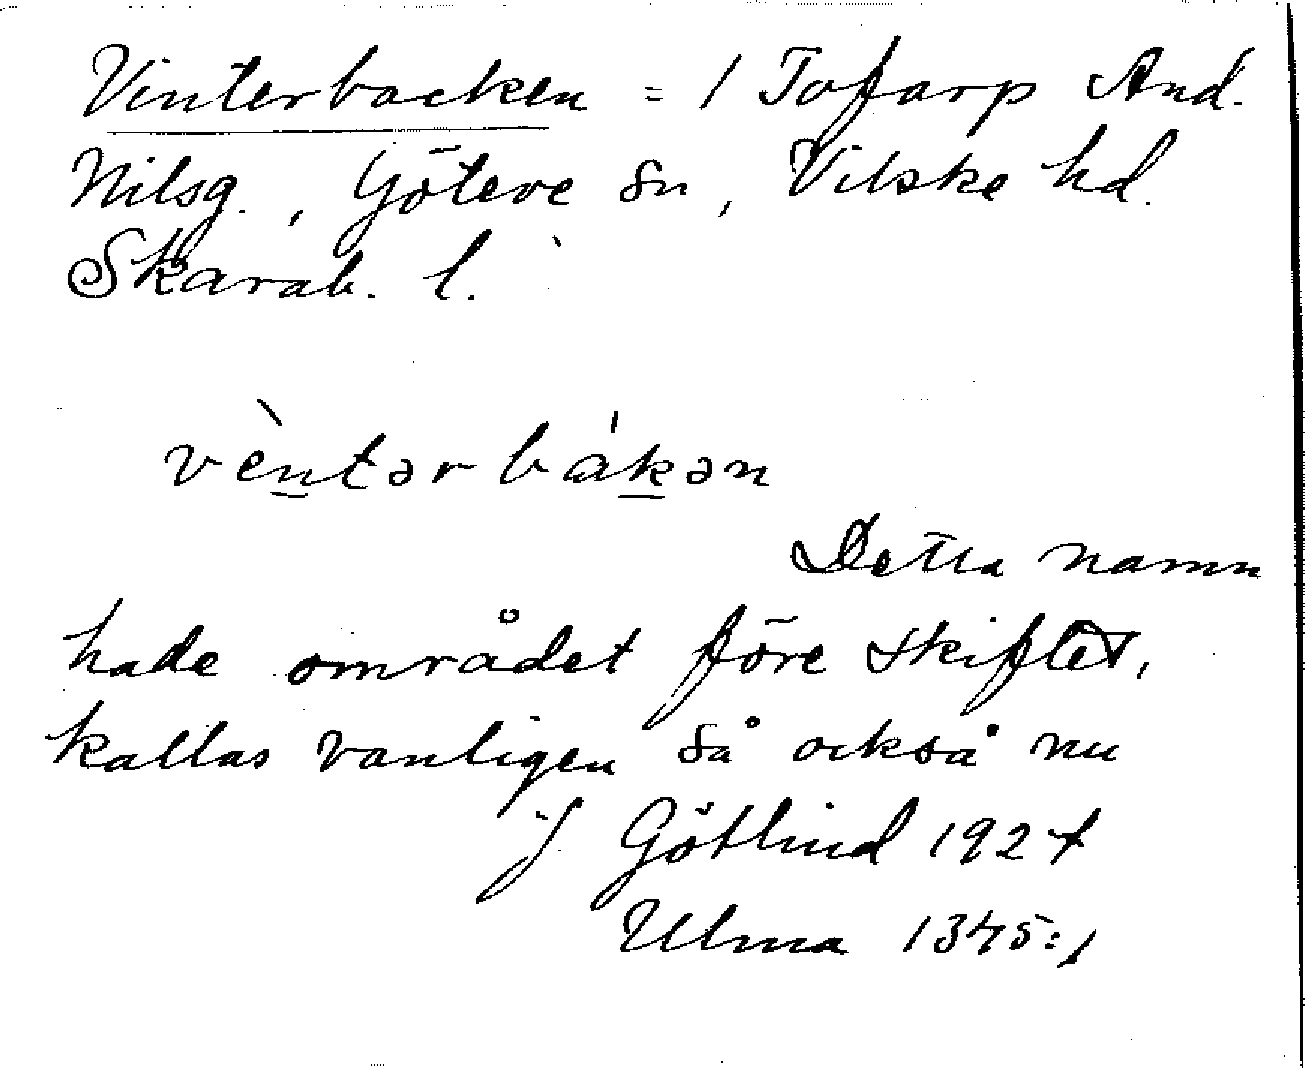 Vinterbacken = 1 Tofarp And.
Nilsg., Göteve sn, Vilske hd.
Skarab. l.
vèntərbákən
Detta namn
hade området före skiftet,
kallas vanligen så också nu
J Götlind 1924
Ulma 1345:1